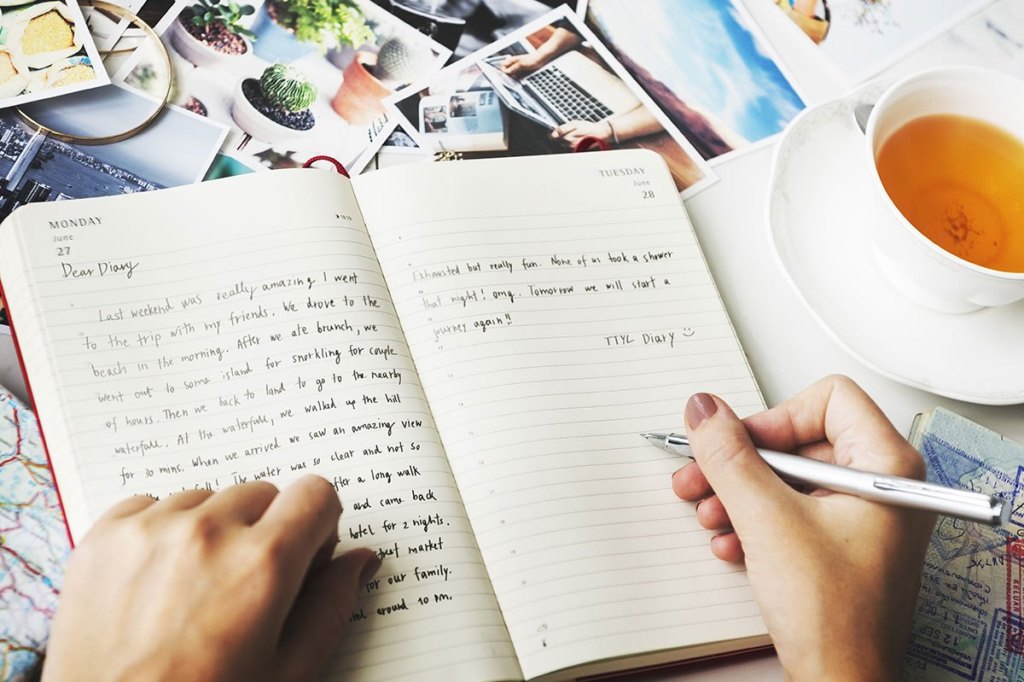 MONDAY
June
27
Dear Diary
Last weekend was really amazing. I went
to the trip with my friends. We drove to the
beach in the morning. After we ate brunch, we
went out to some island for snorkling for couple
of hours. Then we back to land to go to the nearby
waterfall. At the waterfall, we walked up the hill
for 30 mins. When we arrived we saw an amazing view
The water was so clear and not so
after a long walk
and came back
hotel for 2 nights.
street market
for our family.
around 10 pm.
TUESDAY
June
28
Exhausted but really fun. None of us took a shower
that night! omg. Tomorrow we will start a
journey again!!
TTYL Diary